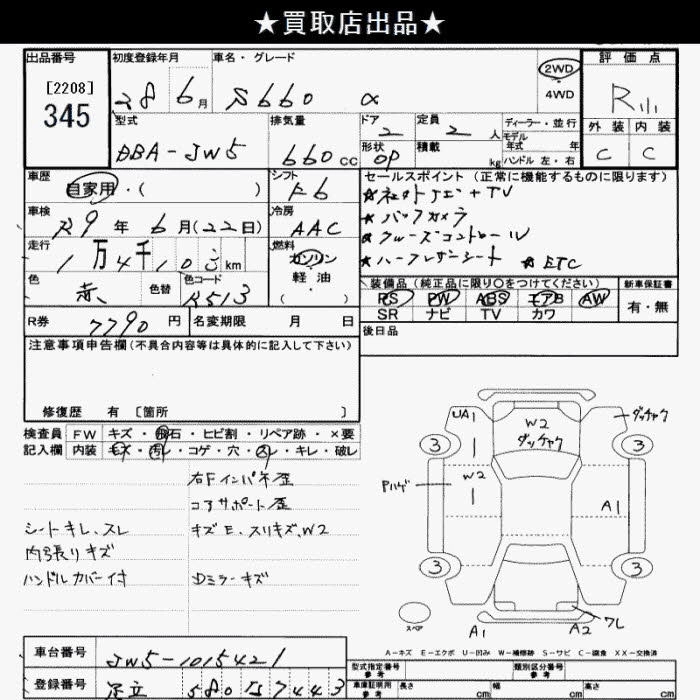 ★買取店出品★
出品番号
[2208]
345
初度登録年月
28 6月
車名・グレード
S660 α
2WD
4WD
評価点
R
外装 内装
C C
型式
DBA-JW5
排気量
660cc
ドア
2
形状
OP
定員
2人
積載
kg
ディーラー・並行
モデル
年式 年
ハンドル 左・右
車歴
自家用・( )
シフト
F6
車検
R9年6月(22日)
冷房
AAC
走行
1万4千10 km
燃料
ガソリン
軽油
( )
色
赤
色替
色コード
R513
R券
7790円
名変期限 月 日
セールスポイント(正常に機能するものに限ります)
★ バックカメラ
★ クルーズコントロール
★ ハーフレザーシート ★ ETC
装備品(純正品に限り○をつけてください)
PS PW ABS エアB AW
SR ナビ TV カワ
新車保証書
有・無
後日品
注意事項申告欄(不具合内容等は具体的に記入して下さい)
修復歴 有 [箇所 ]
検査員 FW キズ・飛石・ヒビ割・リペア跡・×要
記入欄 内装 キズ・汚レ・コゲ・穴・スレ・キレ・破レ
右Fインパネ歪
コアサポート歪
シートキレ、スレ キズE、スリキズ、W2
内張りキズ
ハンドルカバー付 Dミラーキズ
UA1
W2
ダッチャク
ダッチャク
3
3
3
3
Pハゲ
W2
A1
ワレ
A1
A2
スペア
A-キズ E-エクボ U-凹み W-補修跡 S-サビ C-腐食 XX-交換済
車台番号
JW5-1015421
登録番号
足立 580 7443
型式指定番号
参考
類別区分番号
参考
車庫証明用
参考
長さ cm 幅 cm 高さ cm